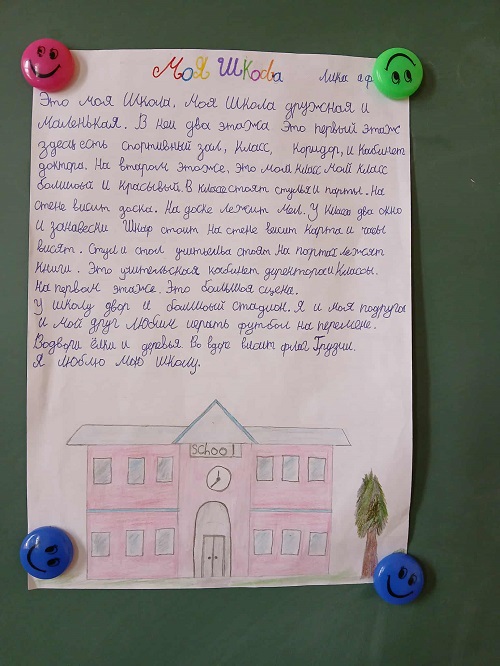 Моя Шкова
Лика а ф
Это моя Школа. Моя Школа дружная и
маленькая. В ней два этажа Это первый этаж
здесь есть спортивный зал, класс, коридор, и кабинет
доктора. На втаром этоже, это мой класс мой класс
болшоый и красывый. В класе стоят стулья и парты. На
стене висит доска. На доске лежит мел. У класа два окно
и занавески Шкаф стоит На стене висит карта и часы
висят. Стул и стол учительа стоят На партах лежят
книги. Это учительская кабинет директора и классы.
На первом этаже. Это большоя сцена.
У школы двор и болшоый стадион. Я и моя подруга
и мой друг любим играть футбол на перемене.
Водвори ёлки и деревья Во вдоре висит флаг Грузии.
Я люблю мою школу.
School